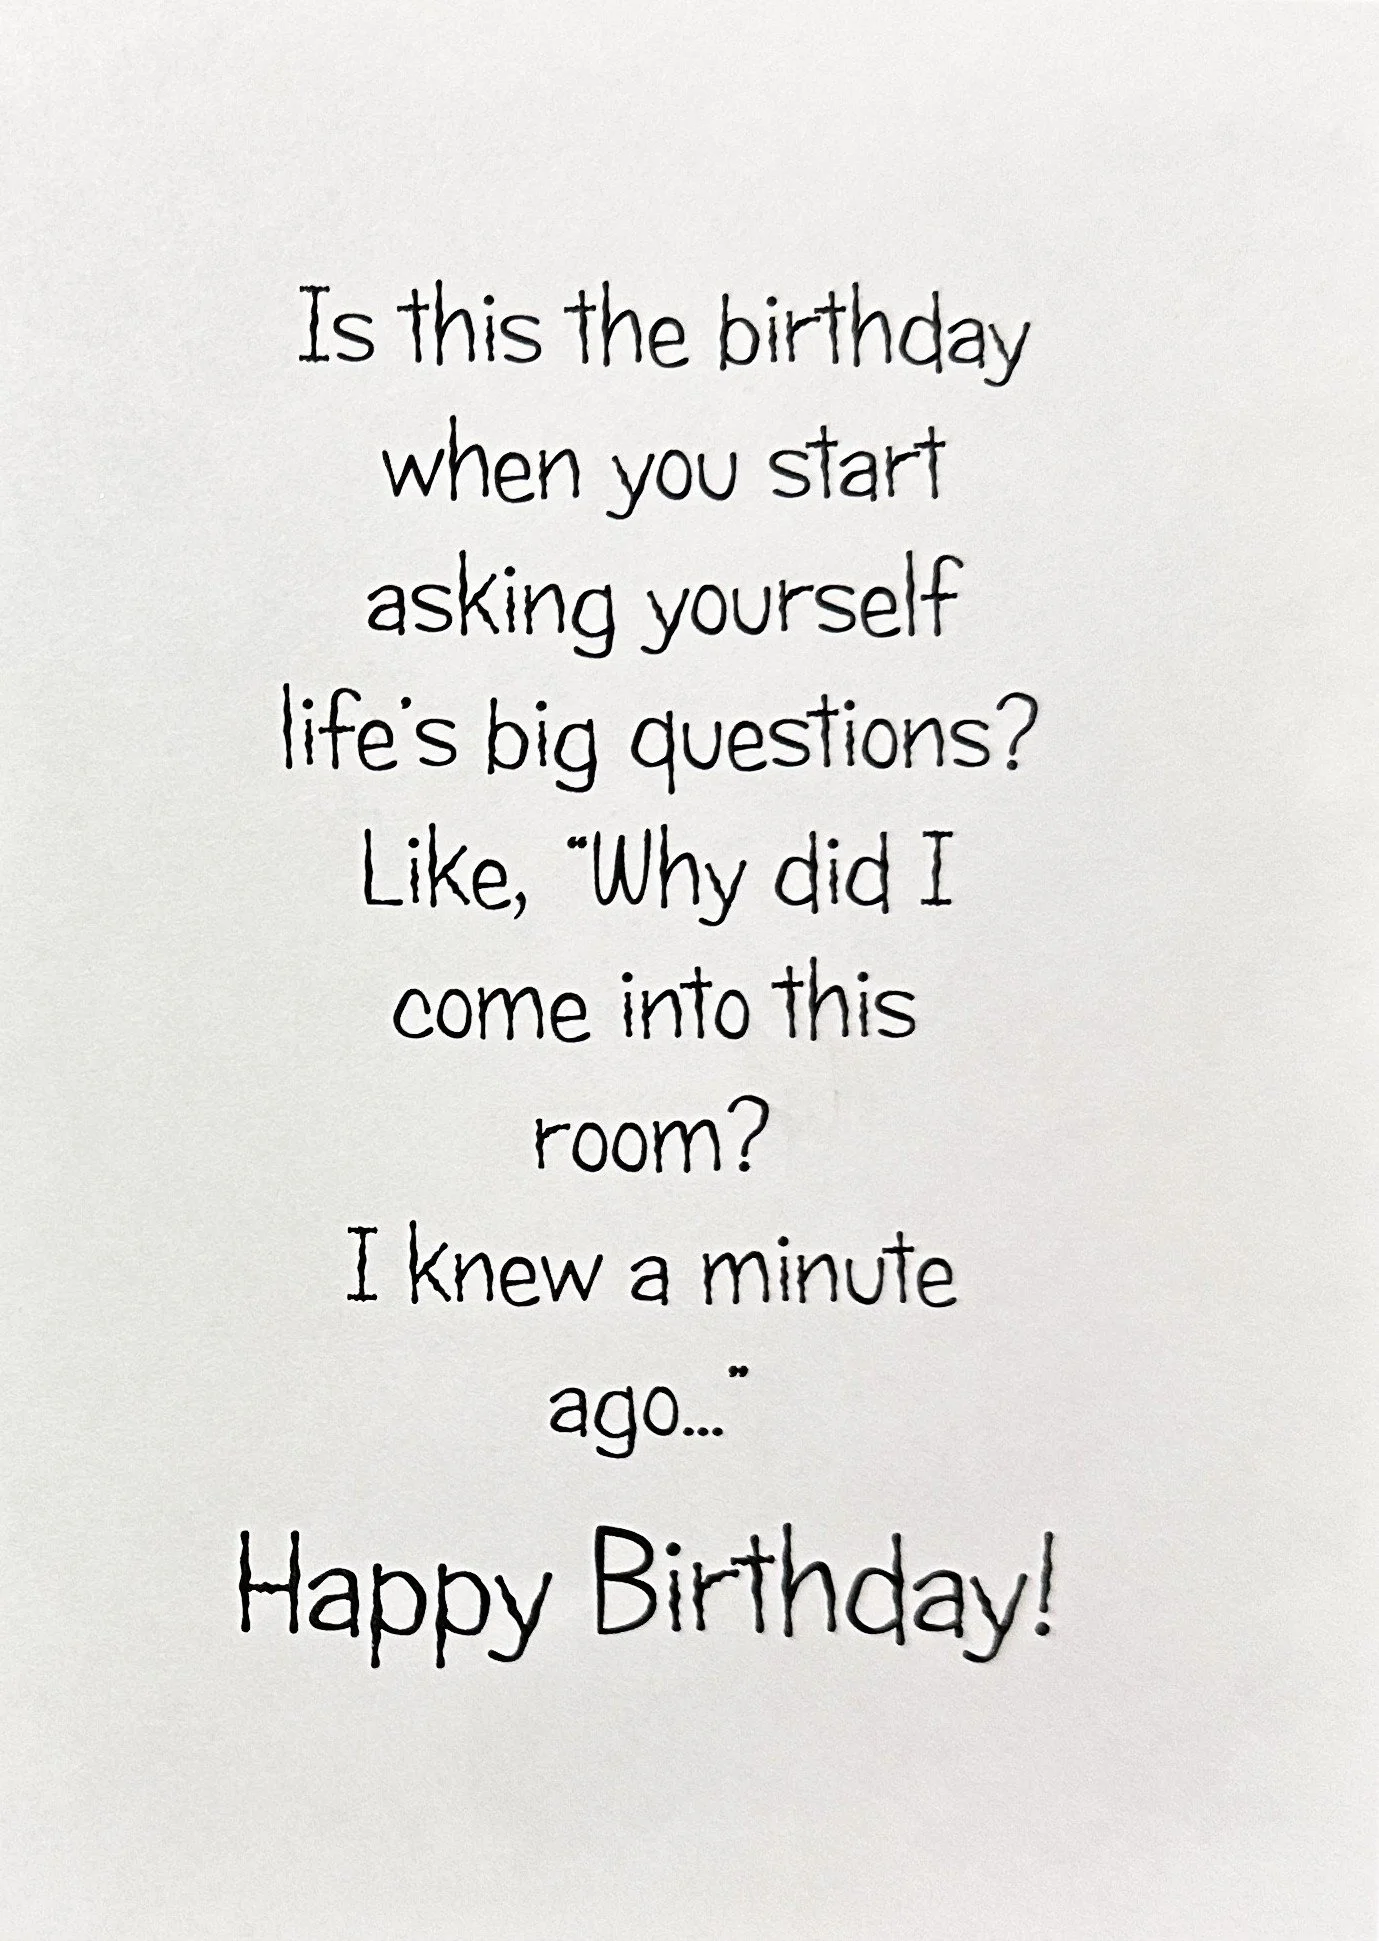 Is this the birthday
when you start
asking yourself
life's big questions?
Like, “Why did I
come into this
room?
I knew a minute
ago...”
Happy Birthday!